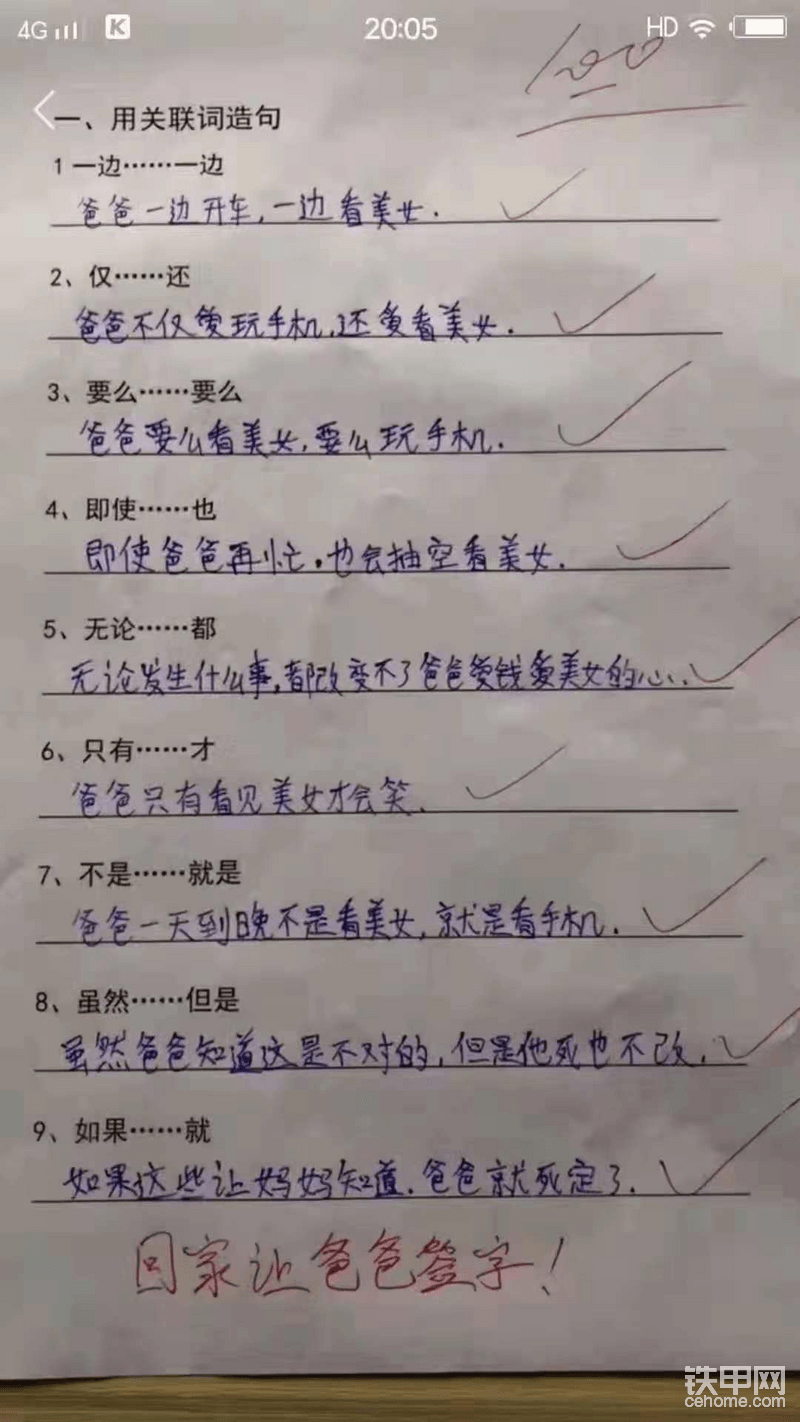 4G K 20:05 HD
100
一、用关联词造句
1 一边……一边
爸爸一边开车,一边看美女.
2、仅……还
爸爸不仅爱玩手机,还爱看美女.
3、要么……要么
爸爸要么看美女,要么玩手机.
4、即使……也
即使爸爸再忙.也会抽空看美女.
5、无论……都
无论发生什么事,都改变不了爸爸爱钱爱美女的心.
6、只有……才
爸爸只有看见美女才会笑.
7、不是……就是
爸爸一天到晚不是看美女,就是看手机.
8、虽然……但是
虽然爸爸知道这是不对的,但是他死也不改.
9、如果……就
如果这些让妈妈知道.爸爸就死定了.
回家让爸爸签字!
铁甲网
cehome.com